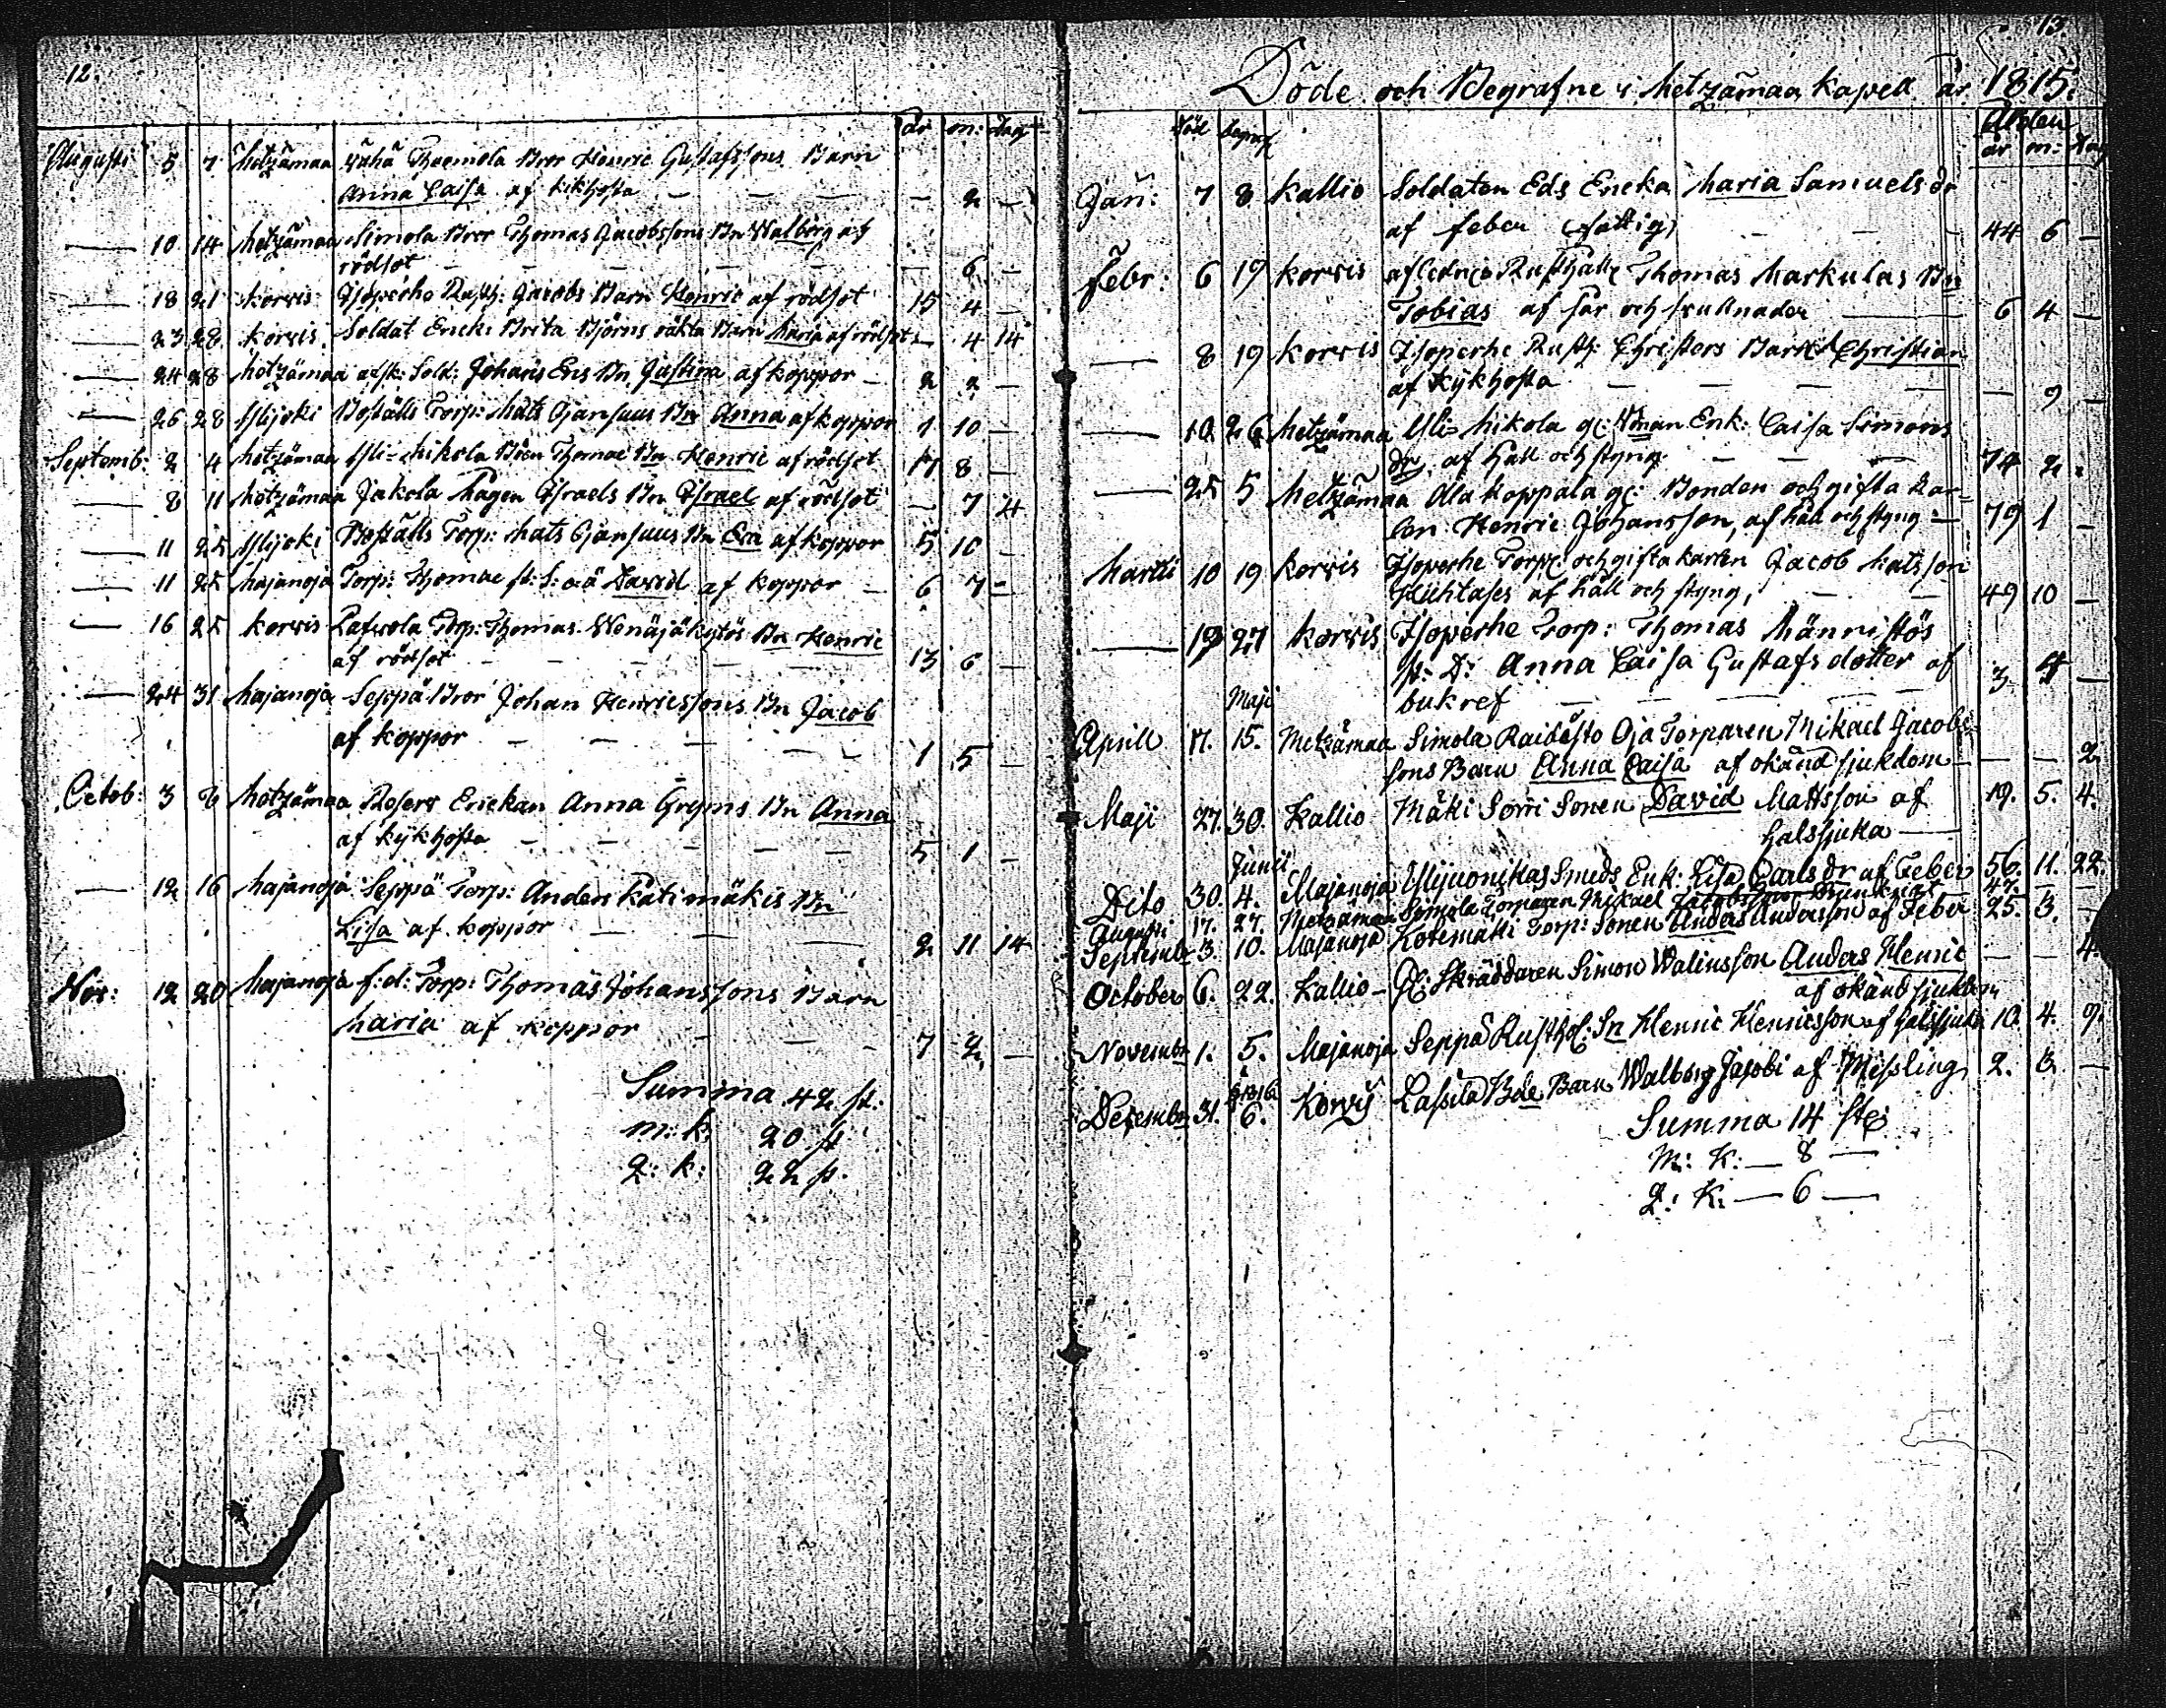 12.
år m: dag
Augusti 5 7 Metzämaa Wähä Thaemola Bror Henric Gustafssons Barn
Anna Caisa af kikhosta — — — — 2 —
— 10 14 Metzämaa Simola Bror Thomas Jacobssons Bn Walborg af
rödsot — — — — — 6 —
— 18 21 Korvis Isoperhe Rusth: Jacobs Barn Henric af rödsot 15 4 —
— 23 28 Korvis Soldat Encki Brita Björns oäkta Barn Maria af rödsot — 4 14
— 24 28 Metzämaa afsk: Sold: Johans Ens Bn Justina af koppor — 2 2 —
— 26 28 Ylijoki Boställs Torp: Mats Ojansuus Bn Anna af koppor 1 10 —
Septemb: 2 4 Metzämaa Yli-Mikola Bden Thomae Bn Henric af rödsot 17 8 —
— 8 11 Metzämaa Jakola Mågen Israels Bn Israel af rödsot — 7 4
— 11 25 Ylijoki Boställs Torp: Mats Ojansuus Bn Eva af koppor 5 10 —
— 11 25 Majanoja Torp: Thomae st: S: oä David af koppor — 6 7 —
— 16 25 Korvis Torp: Thomas Wenäjäkytös Bn Henric
af rödsot — — — — — 13 6 —
— 24 31 Majanoja Seppä Bror Johan Henricssons Bn Jacob
af koppor — — — — — 1 5 —
Octob: 3 8 Metzämaa Reserv Enckan Anna Gryms Bn Anna
af kykhosta — — — — — 5 1 —
— 12 16 Majanoja Seppä Torp: Anders Katimäkis Bn
Lisa af koppor — — — 2 11 14
Nov: 12 20 Majanoja f: d: Torp: Thomas Johanssons Barn
Maria af koppor — — — 7 2 —
Summa 42 st:
m: k: 20 st
q: k: 22 st.
13.
Döde och Begrafne i Metzämaa Kapell år 1815.
död begraf Ålder
år m: dag
Jan: 7 8 Kallio Soldaten Eds Encka Maria Samuels dr
af feber (fattig) — — — 44 6 —
Febr: 6 19 Korvis afledne Rusthålle Thomas Markulas Bn
Tobias af sår och svullnader — 6 4 —
— 8 19 Korvis Isoperhe Rusth: Christers Barn Christian
af kykhosta — — — — — 9 —
— 10 26 Metzämaa Yli-Mikola gl: Wman Enk: Caisa Simons
dr, af håll och styng — — — 74 2.
— 25 5 Metzämaa Ala Koppala gl: Bonden och gifta kar=
len Henric Johansson, af håll och styng — 79 1 —
Martii 10 19 Korvis Isoperhe Torp: och gifta karlen Jacob Matsson
Huhtases af håll och styng, — — 49 10 —
— 19 27 Korvis Isoperhe Torp: Thomas Männistös
st: D: Anna Caisa Gustafs dotter af
bukref — — — — — 3 4 —
Maji
Aprill 17. 15. Metzämaa Simola Raibosto Oja Torparen Mikael Jacobs=
sons Barn Anna Caisa af okänd sjukdom — — — 2
Maji 27. 30. Kallio Mäki Sorri Sonen David Mattsson af 19. 5. 4.
halssjuka —
Junii
Dito 30. 4. Majanoja Ylijuonikas Smeds Enk: Lisa Carls dr af Feber 56. 11. 22.
Augusti 17. 27. Metzämaa Simola Torparen Mikael Jacobsson 47. — —
Septembr 3. 10. Majanoja Kotimatti Torp: Sonen Anders Andersson af Feber 25. 3. —
October 6. 22. Kallio — Gl: Skräddaren Simon Walinsson Anders Henric — — 4.
af okänd sjukdom
Novembr 1. 5. Majanoja Seppä Rusthol: Sn Henric Henricsson af halssjuka 10. 4. 9.
1816
Decembr 31. 6. Korvis Lassila Bde Barn Walborg Jacobi af Messling 2. 3. —
Summa 14 st:
M: K: — 8 —
Q: K: — 6 —